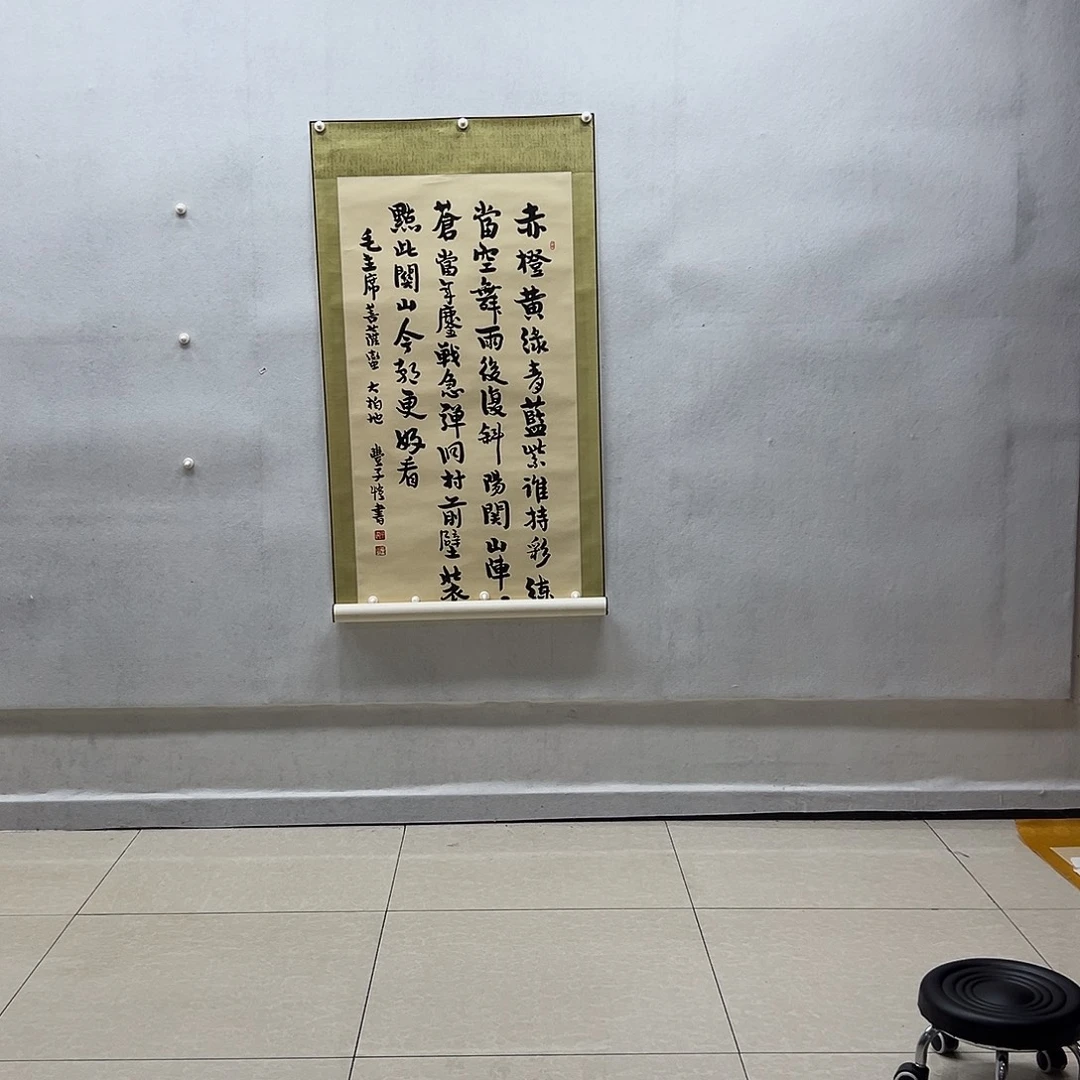 赤橙黄綠青藍紫谁持彩練
當空舞雨後復斜陽関山陣
蒼當年鏖戰急弹洞村前壁裝
點此關山今朝更好看
毛主席菩薩蠻 大柏地 豐子愷書